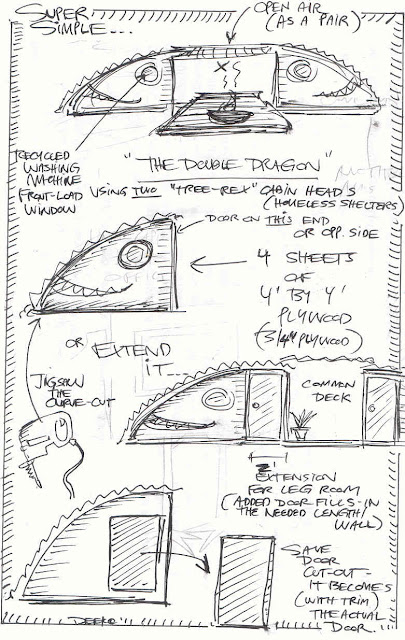 SUPER
SIMPLE...
OPEN AIR
(AS A PAIR)
RECYCLED
WASHING
MACHINE
FRONT-LOAD
WINDOW
"THE DOUBLE DRAGON"
USING TWO "TREE-REX" CABIN HEADS
(HOMELESS SHELTERS)
DOOR ON THIS END
OR OPP. SIDE
4 SHEETS
OF
4' BY 4'
PLYWOOD
(3/4" PLYWOOD)
OR EXTEND
IT...
JIGSAW
THE
CURVE-CUT
COMMON
DECK
2'
EXTENSION
FOR LEG ROOM
(ADDED DOOR FILLS-IN
THE NEEDED LENGTH/
WALL)
SAVE
DOOR
CUT-OUT -
IT BECOMES
(WITH TRIM)
THE ACTUAL
DOOR...
DEEK